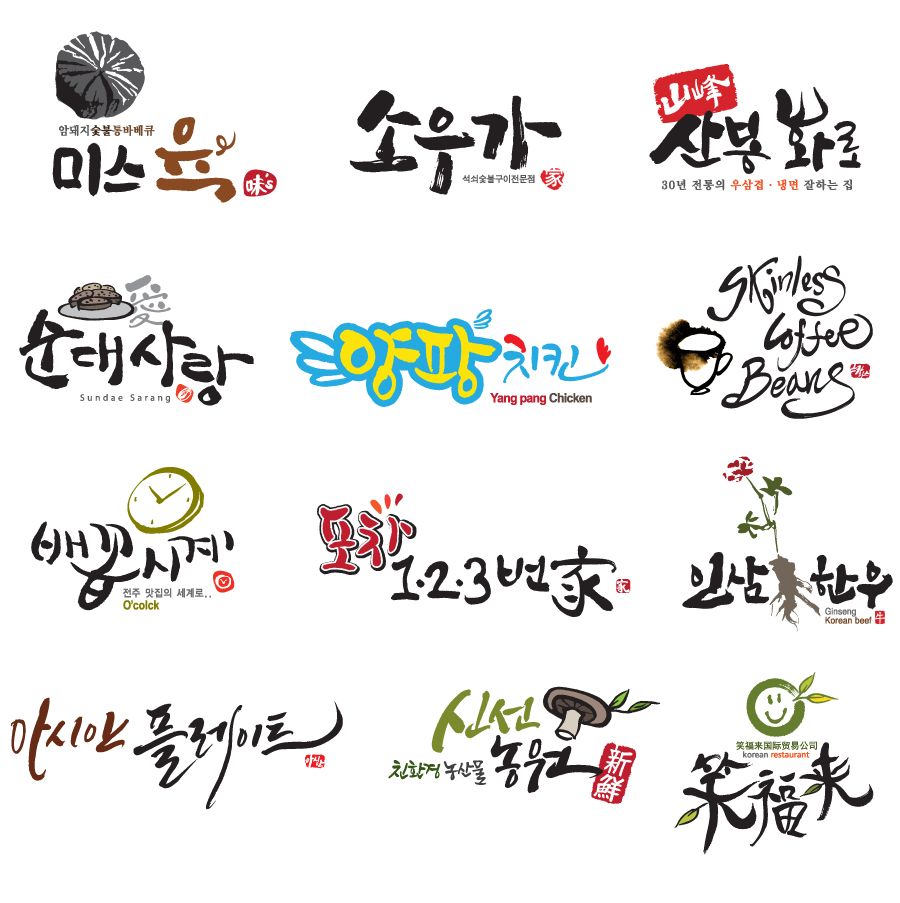 암돼지숯불통바베큐
미스 육
味's
소우가
석쇠숯불구이전문점
家
山峰
산봉 화로
30년 전통의 우삼겹 · 냉면 잘하는 집
愛
순대사랑
Sundae Sarang
양팡 치킨
Yang pang Chicken
Skinless
Coffee
Beans
배꼽시계
전주 맛집의 세계로..
O'colck
포차
1·2·3번家
家
인삼 한우
Ginseng
Korean beef 牛
아시안 플레이트
신선
친환경 농산물 농우고
新鮮
笑福来国际贸易公司
korean restaurant
笑福来